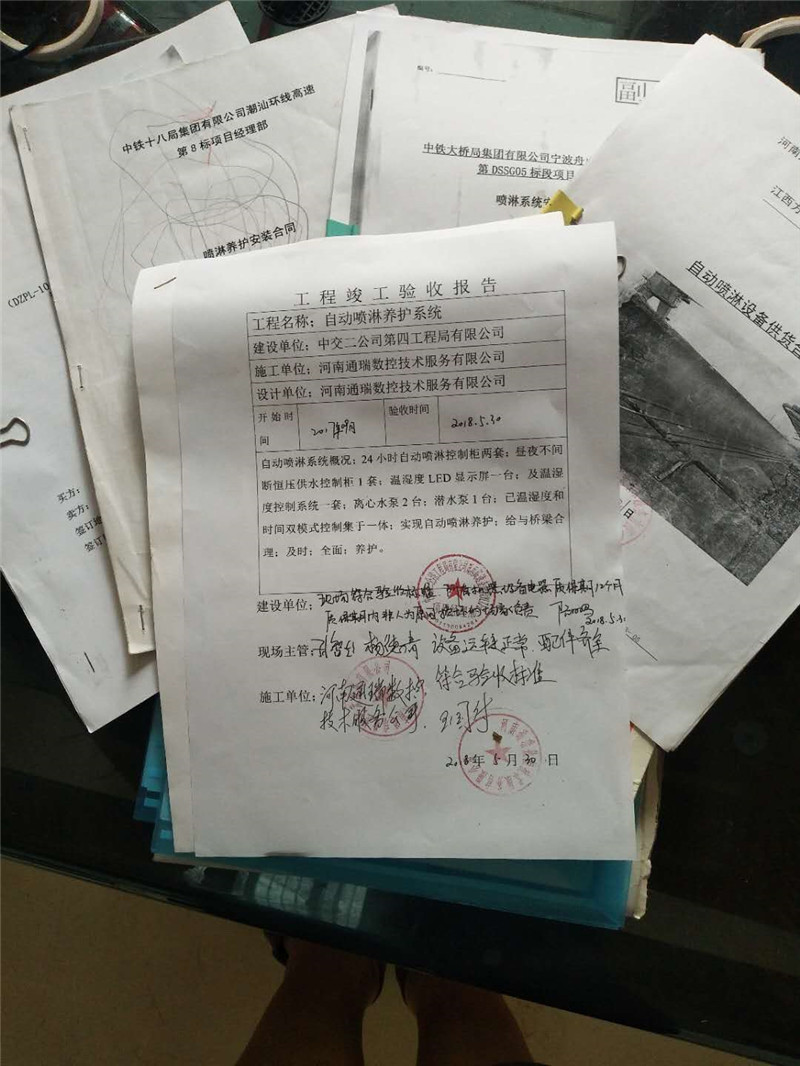 中铁十八局集团有限公司潮汕环线高速
第8标项目经理部
喷淋养护安装合同
编号：
副
中铁大桥局集团有限公司宁波舟
第DSSG05标段项目
喷淋系统安
河南
江西方
自动喷淋设备供货合
(DZPL-10
买方：
卖方：
签订地
签订
工程竣工验收报告
工程名称：自动喷淋养护系统
建设单位：中交二公司第四工程局有限公司
施工单位：河南通瑞数控技术服务有限公司
设计单位：河南通瑞数控技术服务有限公司
开始时间 2017年09月 验收时间 2018.5.30
自动喷淋系统概况：24小时自动喷淋控制柜两套：昼夜不间
断恒压供水控制柜1套：温湿度LED显示屏一台：及温湿
度控制系统一套：离心水泵2台：潜水泵1台：己温湿度和
时间双模式控制集于一体：实现自动喷淋养护：给与桥梁合
理：及时：全面：养护。
建设单位：现场符合验收标准 质保期12个月
质保期内非人为原因
2018.5.31
现场主管： 设备运转正常 配件齐全
符合验收标准
施工单位：河南通瑞数控
技术服务公司
2018年5月30日